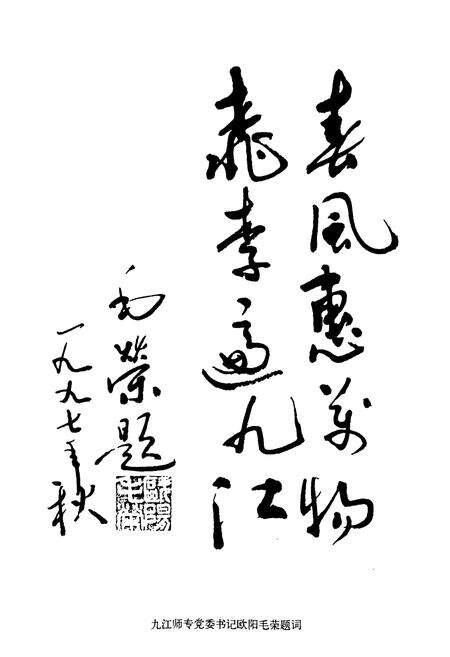 春風惠萬物
桃李遍九江
毛榮題
一九九七年秋
歐陽毛榮
九江师专党委书记欧阳毛荣题词